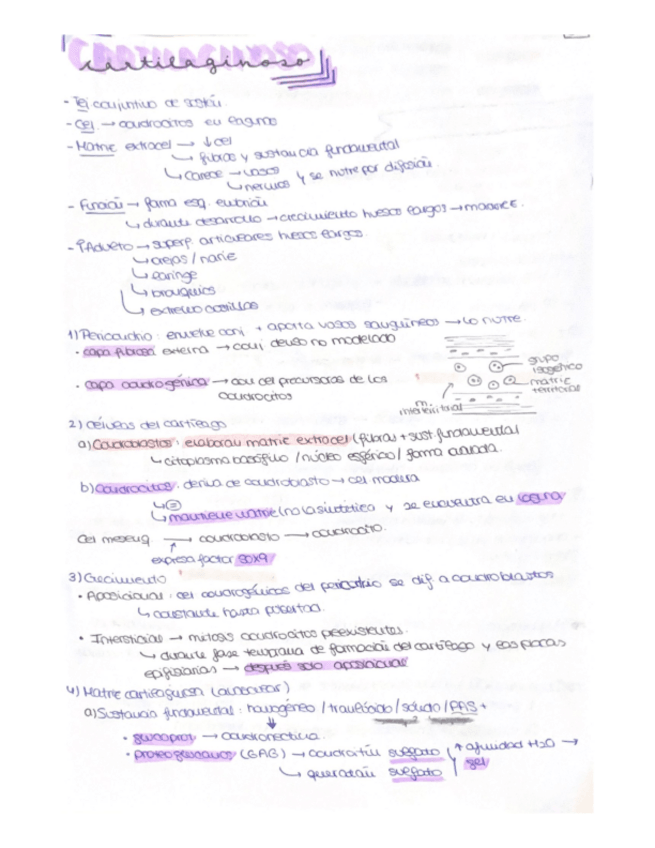 cartilaginoso
- Tej conjuntivo de sostén.
- Cel. → condrocitos en lagunas
- Matriz extracel → ↓ cel
↳ fibras y sustancia fundamental
↳ Carece → vasos
↳ nervios y se nutre por difusión.
- Función → forma esq. embrión
↳ durante desarrollo → crecimiento huesos largos → madurez.
- Adulto → superf. articulares huesos largos
↳ orejas / nariz
↳ laringe
↳ bronquios
↳ extremo costillas
1) Pericondrio: envuelve conj + aporta vasos sanguíneos → lo nutre.
• capa fibrosa externa → conj denso no modelado
• capa condrogénica → con cel precursoras de los
condrocitos
grupo
isogénico
matriz
territorial
m.
interterritorial
2) células del cartílago
a) Condroblastos: elaboran matriz extracel (fibras + sust. fundamental
↳ citoplasma basófilo / núcleo esférico / forma ovalada.
b) Condrocitos: deriva de condroblasto → cel madura
↳ mantiene matriz (no la sintetiza) y se encuentra en laguna
Cel mesenq → condroblasto → condrocito.
expresa factor SOX9
3) Crecimiento
• Aposicional: cel condrogénicas del pericondrio se dif a condroblastos
↳ constante hasta pubertad.
• Intersticial → mitosis condrocitos preexistentes.
↳ durante fase temprana de formación del cartílago y las placas
epifisiarias → después solo aposicional
4) Matriz cartilaginosa
a) Sustancia fundamental: homogéneo / translúcido / sólido / PAS +
• glucoprot → condronectina.
• proteoglucanos (GAG) → condroitín sulfato ↑ afinidad H2O →
↳ queratán sulfato gel